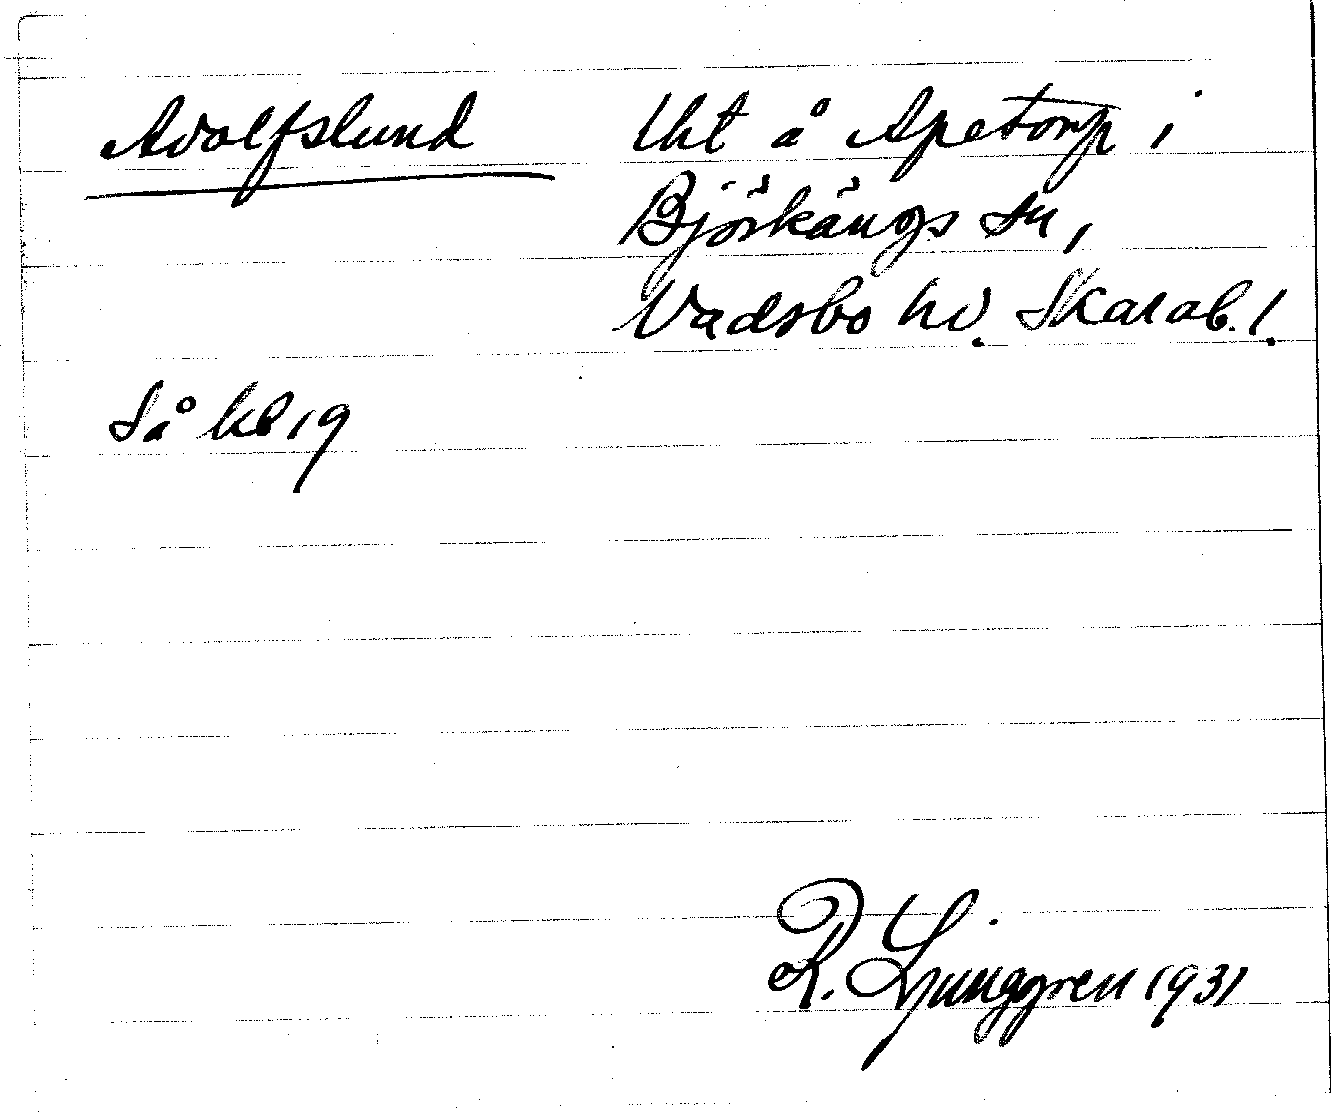 Adolfslund Uht å Apetorp i
Björkängs sn,
Vadsbo hd. Skarab. l.
Så kl 19
R. Ljunggren 1931